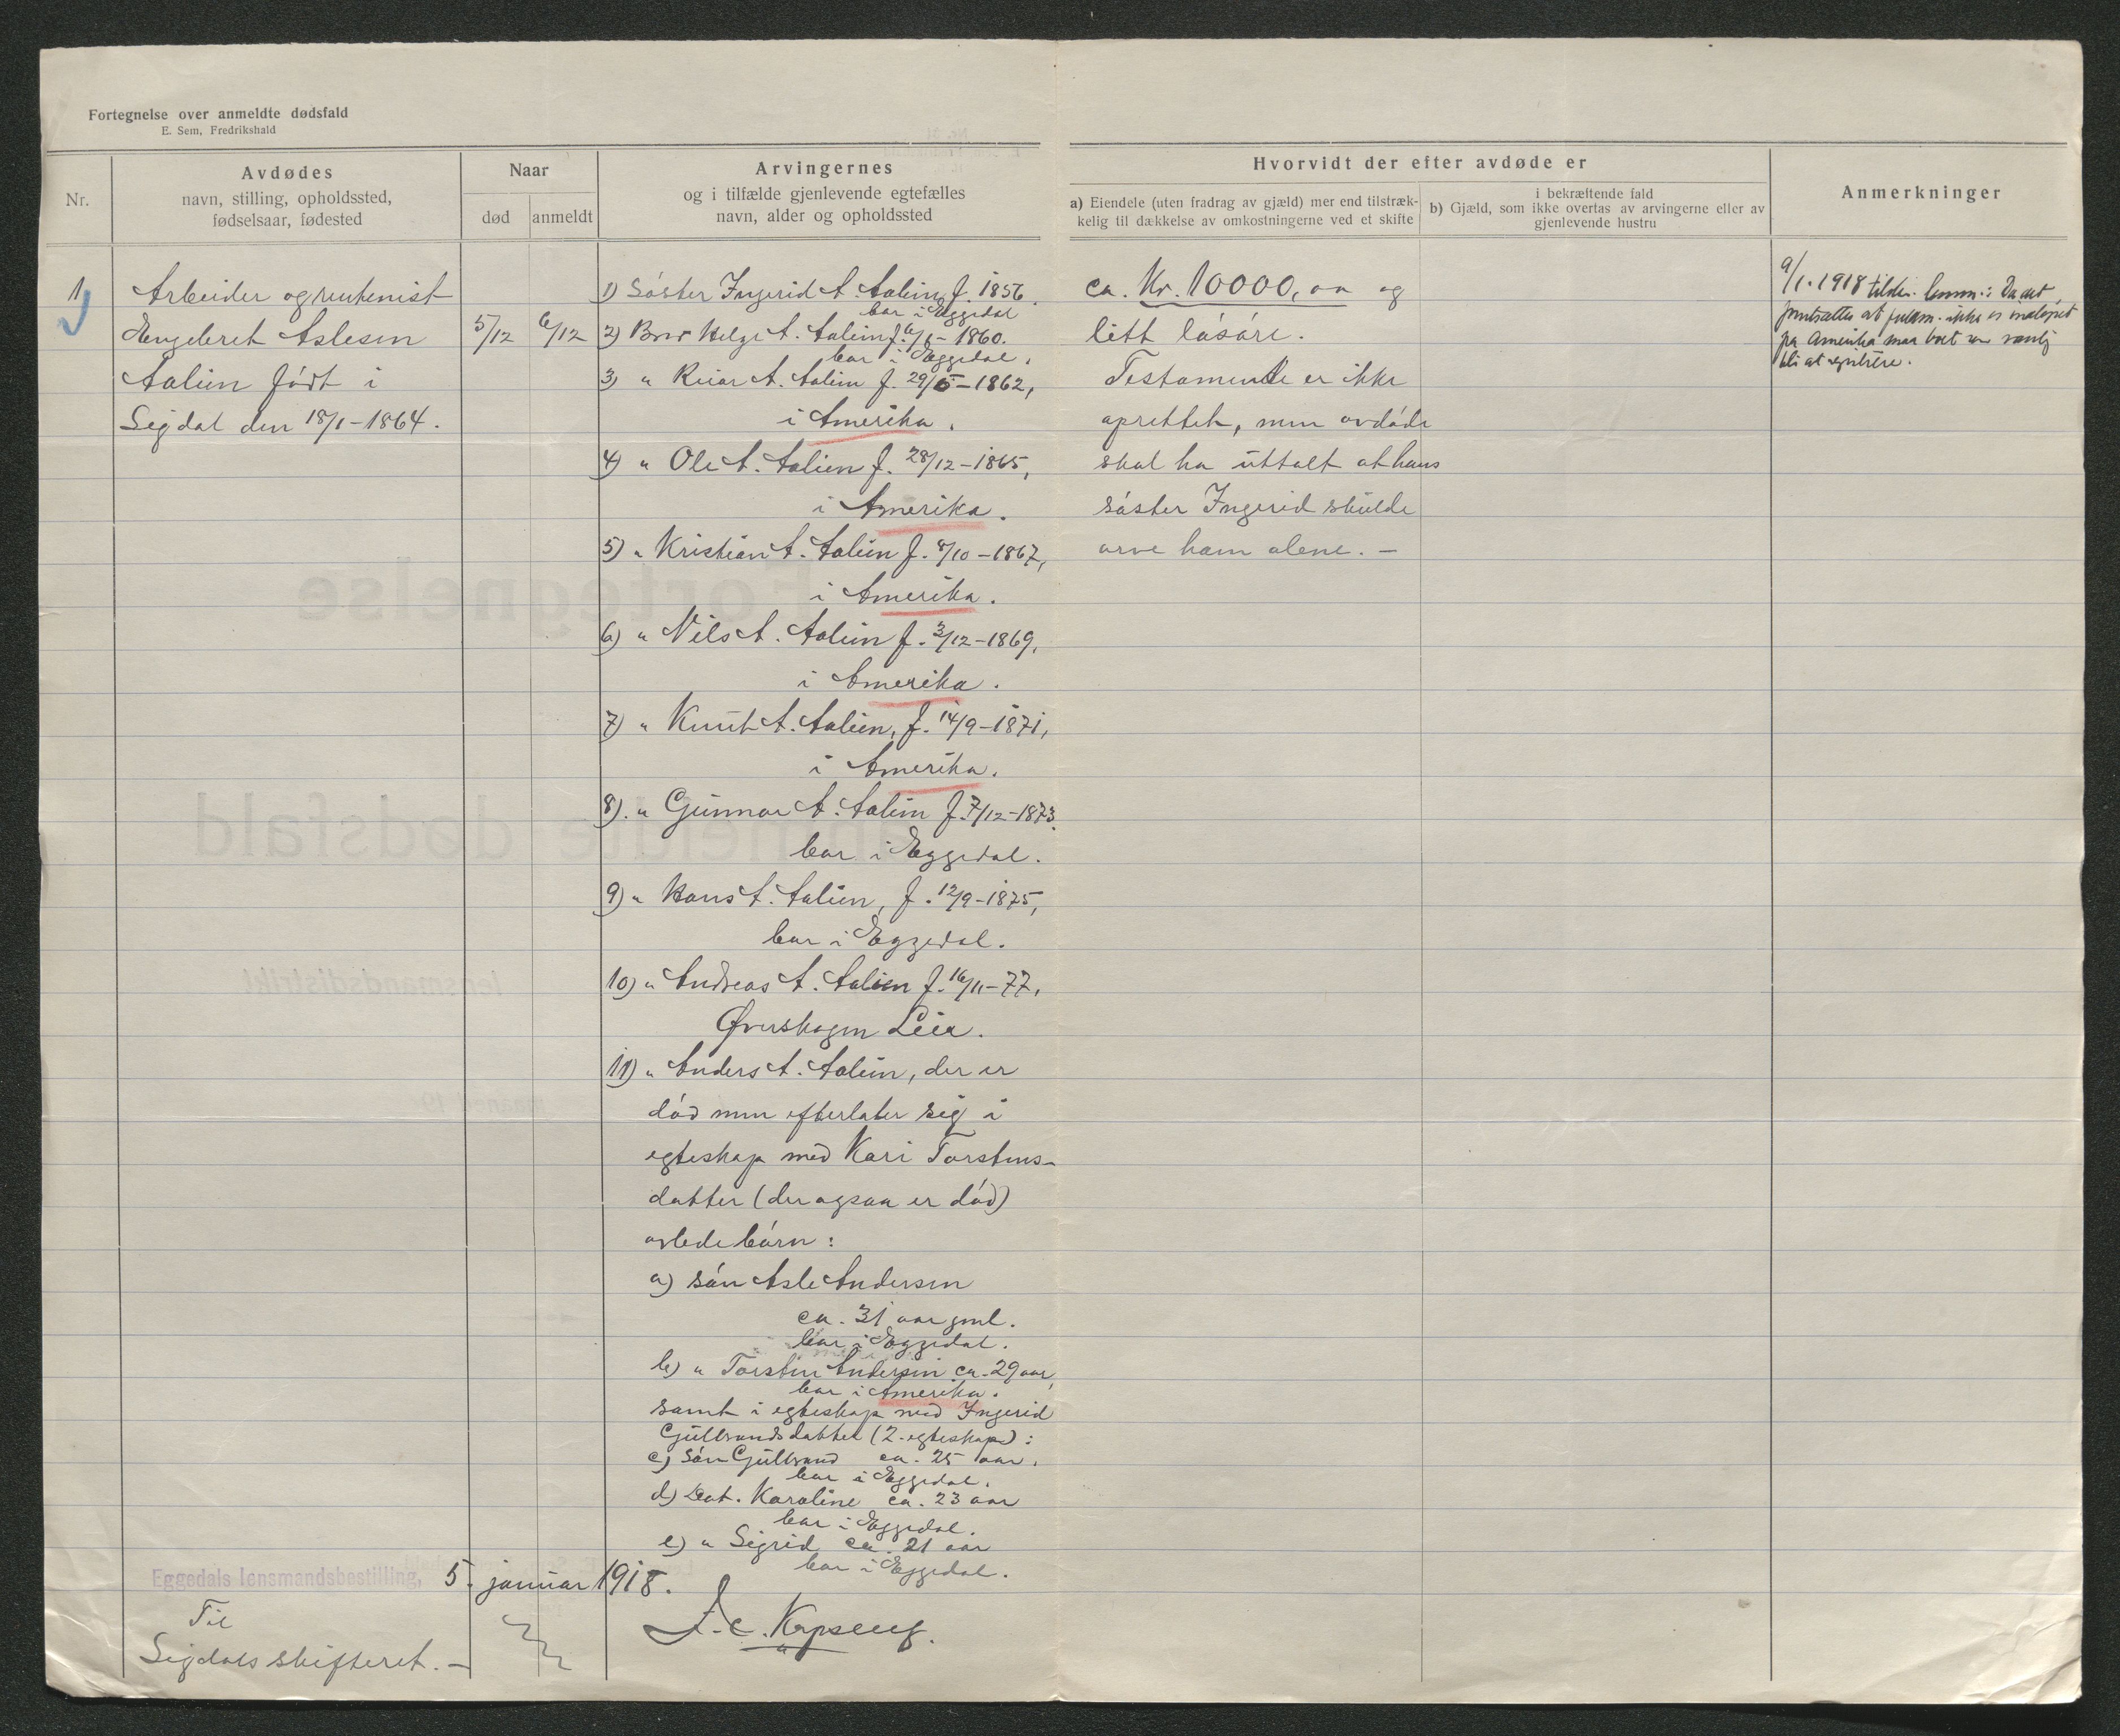 Fortegnelse over anmeldte dødsfald
E. Sem, Fredrikshald
Nr.
Avdødes
navn, stilling, opholdssted,
fødselsaar, fødested
Naar
død
anmeldt
Arvingernes
og i tilfælde gjenlevende egtefælles
navn, alder og opholdssted
Hvorvidt der efter avdøde er
a) Eiendele (uten fradrag av gjæld) mer end tilstræk-
kelig til dækkelse av omkostningerne ved et skifte
i bekræftende fald
b) Gjæld, som ikke overtas av arvingerne eller av
gjenlevende hustru
Anmerkninger
1
Arbeider og rentenist
Engebret Aslesen
Aalien født i
Sigdal den 18/1-1864.
5/12
6/12
1) Søster Ingerid A. Aalien f. 1856.
bor i Eggedal
2) Bror Helge A. Aalien f. 6/6-1860.
bor i Eggedal.
3) " Reiar A. Aalien f. 29/5-1862,
i Amerika.
4) " Ole A. Aalien f. 28/12-1865,
i Amerika.
5) " Kristian A. Aalien f. 8/10-1867,
i Amerika.
6) " Nils A. Aalien f. 3/12-1869,
i Amerika.
7) " Knut A. Aalien, f. 14/9-1871,
i Amerika.
8). " Gunnar A. Aalien f. 7/12-1873.
bor i Eggedal.
9) " Hans A. Aalien, f. 12/9-1875,
bor i Eggedal.
10) " Andreas A. Aalien f. 16/11-77,
Øverskogen Lier.
11) " Anders A. Aalien, der er
død men efterlater sig i
egteskap med Kari Torstens-
datter (der ogsaa er død)
avlede børn:
a) søn Asle Andersen
ca. 31 aar gml.
bor i Eggedal.
b) " Torsten Andersen ca. 29 aar,
bor i Amerika.
samt i egteskap med Ingerid
Gulbrandsdatter (2. egteskap):
c) Søn Gulbrand ca. 25 aar.
bor i Eggedal.
d) Dat. Karoline ca. 23 aar
bor i Eggedal.
e) " Sigrid ca. 21 aar
bor i Eggedal.
ca. Kr. 10000,00 og
litt løsøre.
Testamente er ikke
oprettet, men avdøde
skal ha uttalt at hans
søster Ingerid skulde
arve ham alene. -
9/1-1918 Da det
at ikke er
fra Amerika maa boet
bli at registrere.
Eggedals lensmandsbestilling, 5. januar 1918.
Til
Sigdals skifteret. -